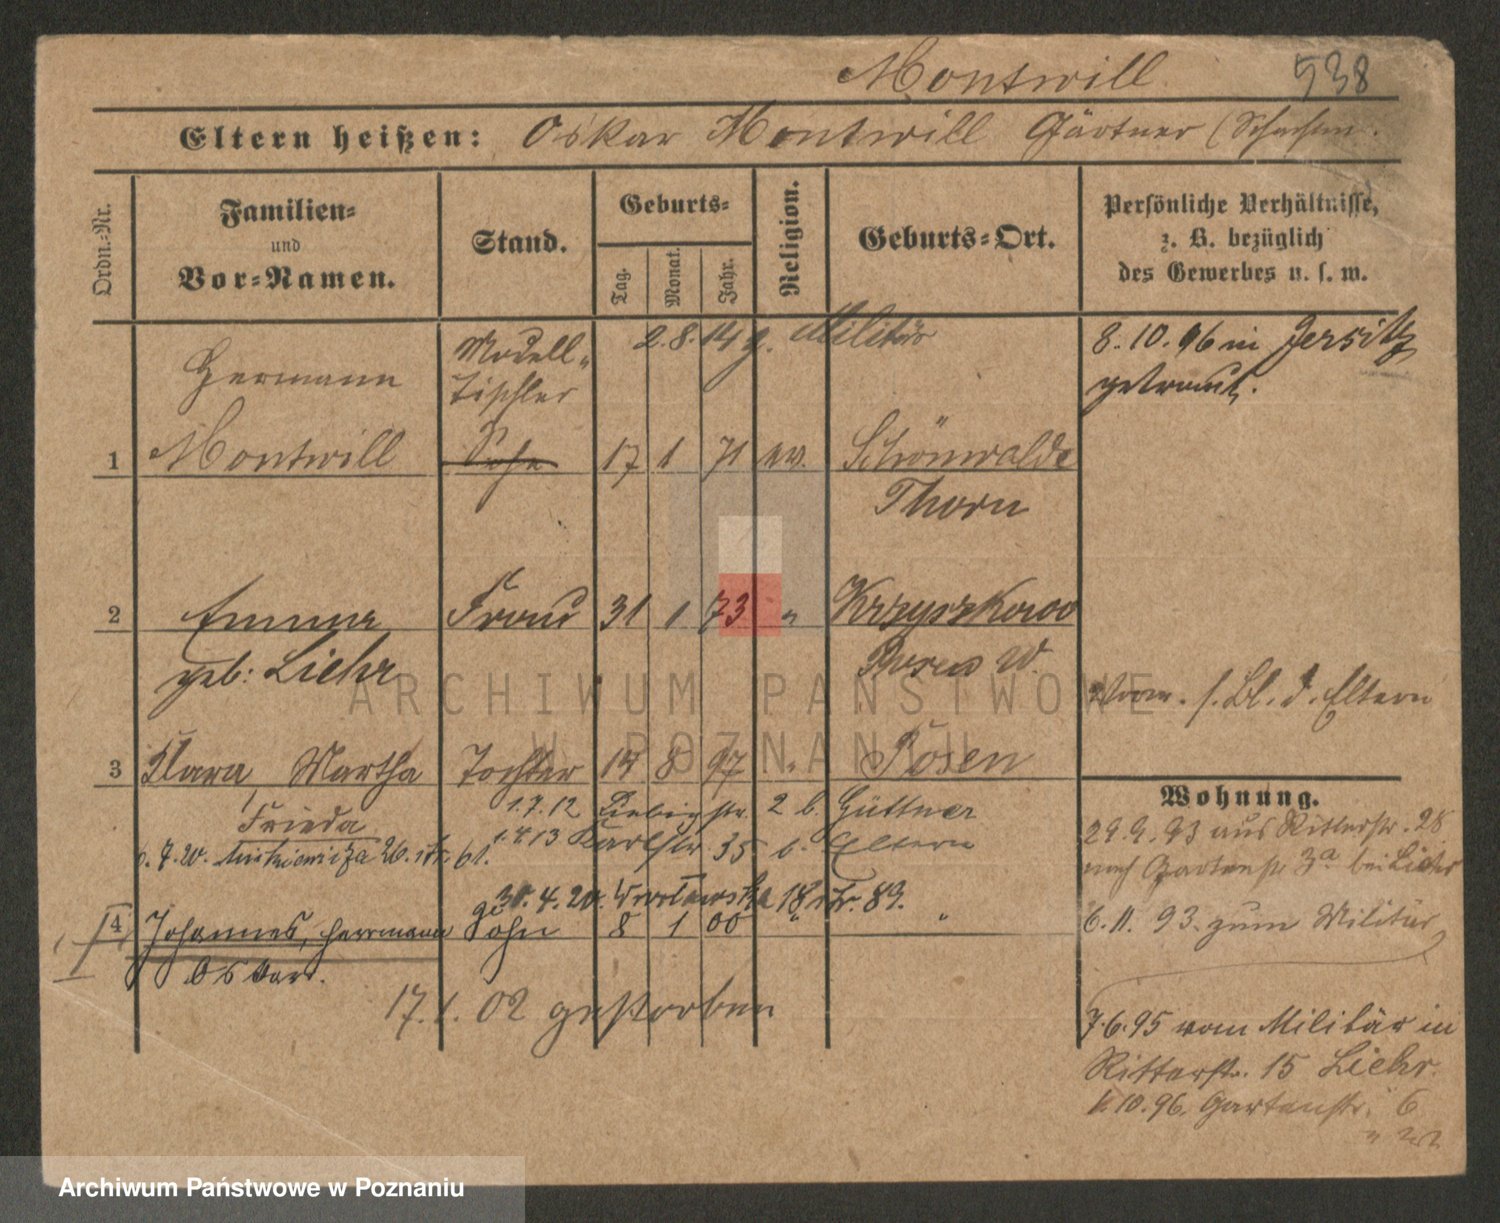 Montwill 538
Eltern heißen: Oskar Montwill Gärtner
Ordn.-Nr.
Familien- und Vor-Namen.
Stand.
Geburts-
Tag. Monat. Jahr.
Religion.
Geburts-Ort.
Persönliche Verhältnisse,
z. B. bezüglich
des Gewerbes u. s. w.
2.8.14 z. Militär
Hermann Modell-
tischler
8.10.96 in Jersitz
getraut.
1 Montwill Sohn 17 1 71 ev. Schönwalde
Thorn
2 Emma Frau 31 1 73 " Krzyszkowo
geb: Liehr Posen W.
s. Bl. d. Eltern
3 Klara, Martha Tochter 14 8 97 " Posen
Frieda
1.7.12 Liebigstr. 2 b. Güttner
1.4.13 Karlstr. 35 b. Eltern
26. 61.
30.4.20. 18 89.
4 Johannes, Herrmann Sohn 8 1 00 " "
Oskar.
17.1.02 gestorben
Wohnung.
29.9.93 aus Ritterstr. 28
nach Gartenstr 3a bei Liehr
6.11.93. zum Militär
7.6.95 vom Militär in
Ritterstr. 15 Liehr.
1.10.96. Gartenstr. 6
ARCHIWUM PAŃSTWOWE
W POZNANIU
Archiwum Państwowe w Poznaniu